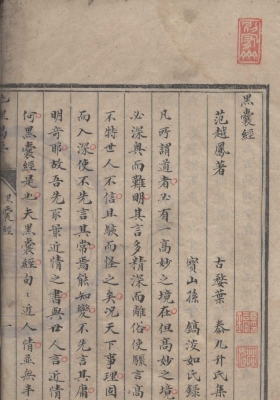 黑囊經
范越鳳著
古婺葉 泰九升氏集
寶山孫 鎬汝如氏録
凡所謂道者必有一高妙之境在但高妙之境
必深奥而難明其言多精深而離俗使驟言高
不特世人不信且駭而怪之矣况天下事理固
而入深使不先言其常焉能知變不先言其庸
明奇耶故吾先取葉近情之書與世人言近情
何黑囊經是也夫黑囊經句〻近人情並無半
黑囊經
一